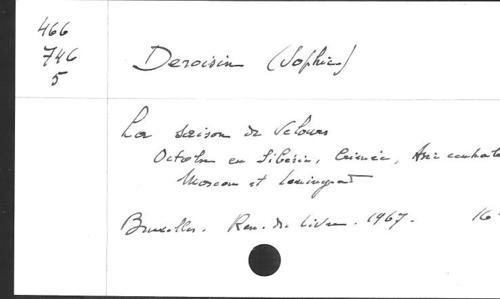 466
746
5
Deroisin (Sophie)
La saison de velours
Octobre en Sibérie, Crimée, Asie centrale
Moscou et Leningrad
Bruxelles. Ren. du Livre. 1967. 16